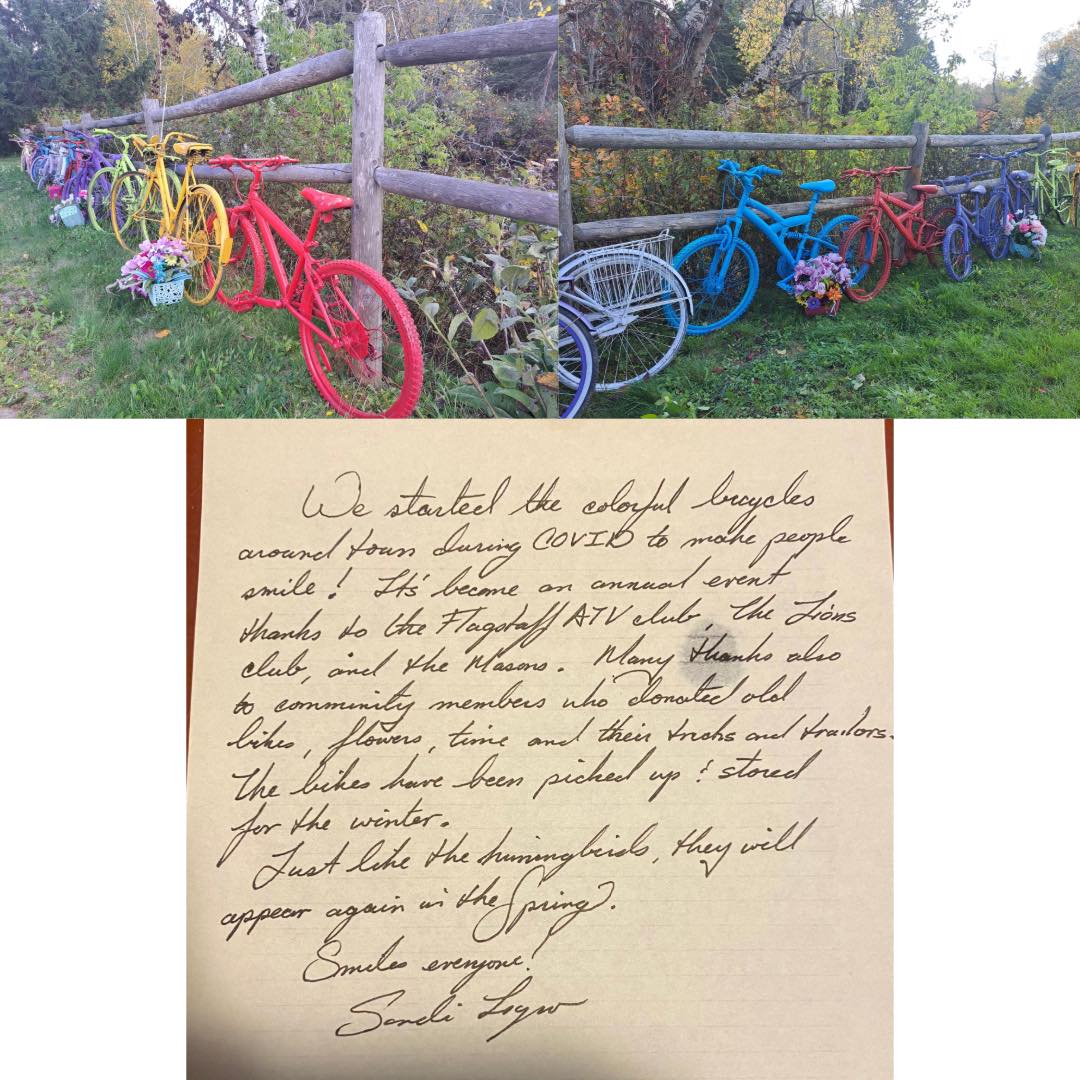 We started the colorful bicycles
around town during COVID to make people
smile! It's become an annual event
thanks to the Flagstaff ATV club, The Lions
club, and the Masons. Many thanks also
to comminity members who donated old
bikes, flowers, time and their trucks and trailors.
The bikes have been picked up & stored
for the winter.
Just like the humingbirds, they will
appear again in the Spring.
Smiles everyone!
Sandi